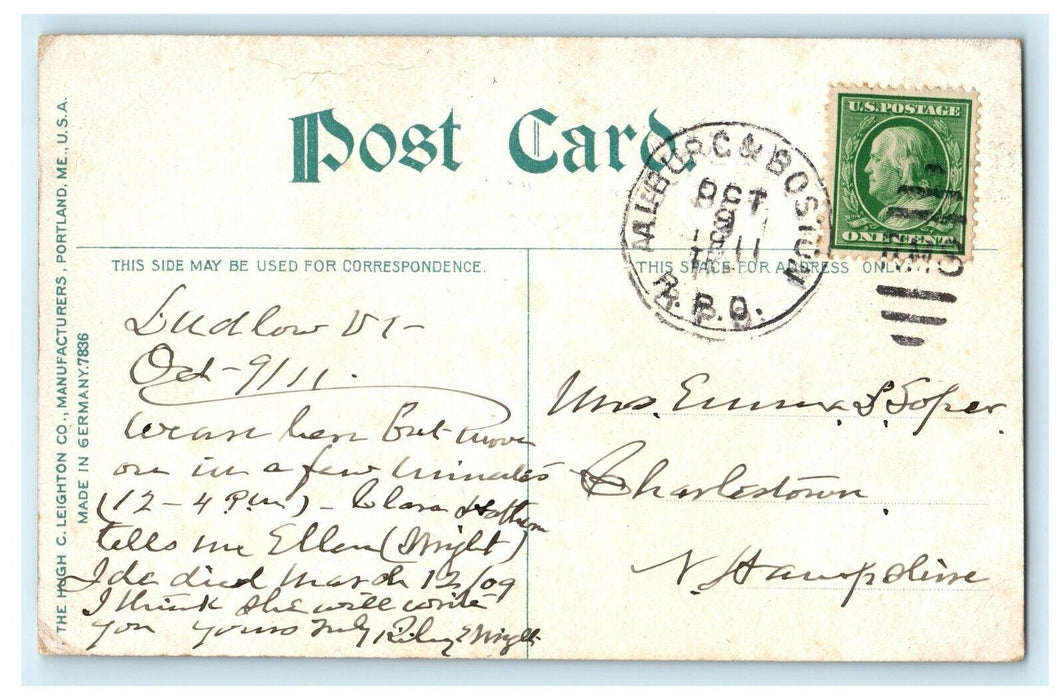 Post Card
U.S. POSTAGE
ONE CENT
BURG & BOSTON
OCT
9
1911
R.P.O.
R.M.S.
THIS SIDE MAY BE USED FOR CORRESPONDENCE.
THIS SPACE FOR ADDRESS ONLY.
THE HUGH C. LEIGHTON CO., MANUFACTURERS, PORTLAND, ME., U.S.A.
MADE IN GERMANY. 7836
Ludlow Vt-
Oct-9/11.
We are here but move
on in a few minutes
(12-4 P.m) - Clara
tells me Ellen (Wright)
Ida died March 12/09
I think she will write
you yours truly Riley Wright
Mrs. Emma S Soper
Charlestown
N. Hampshire